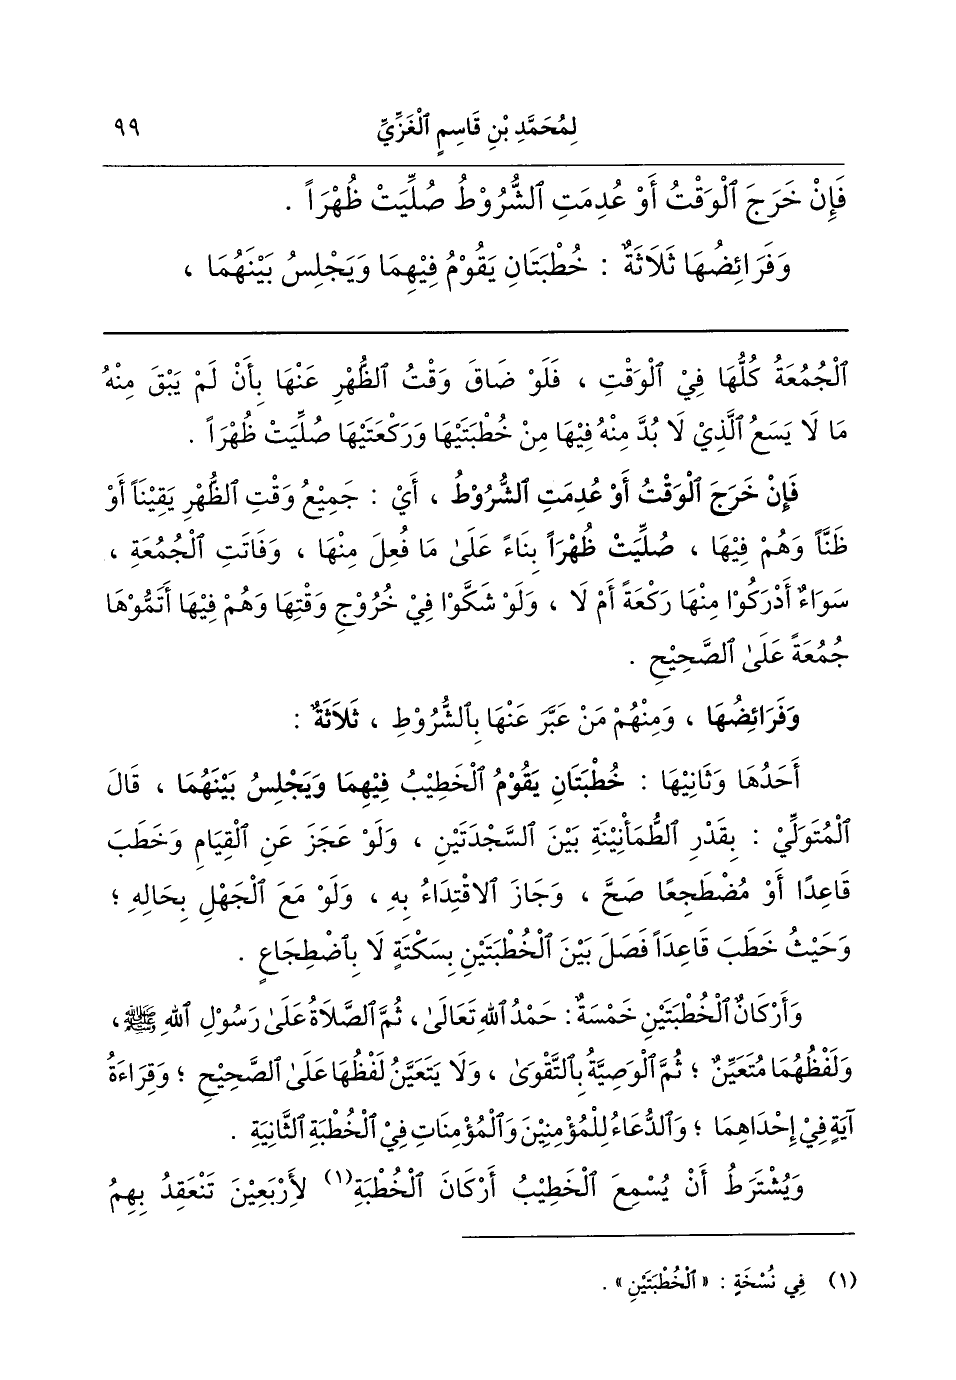 لِمُحَمَّدِ بْنِ قَاسِمٍ ٱلْغَزِّيِّ ٩٩
فَإِنْ خَرَجَ ٱلْوَقْتُ أَوْ عُدِمَتِ ٱلشُّرُوْطُ صُلِّيَتْ ظُهْرَاً .
وَفَرَائِضُهَا ثَلَاثَةٌ : خُطْبَتَانِ يَقُوْمُ فِيْهِمَا وَيَجْلِسُ بَيْنَهُمَا ،
ٱلْجُمُعَةُ كُلُّهَا فِيْ ٱلْوَقْتِ ، فَلَوْ ضَاقَ وَقْتُ ٱلظُّهْرِ عَنْهَا بِأَنْ لَمْ يَبْقَ مِنْهُ
مَا لَا يَسَعُ ٱلَّذِيْ لَا بُدَّ مِنْهُ فِيْهَا مِنْ خُطْبَتَيْهَا وَرَكْعَتَيْهَا صُلِّيَتْ ظُهْرَاً .
فَإِنْ خَرَجَ ٱلْوَقْتُ أَوْ عُدِمَتِ ٱلشُّرُوْطُ ، أَيْ : جَمِيْعُ وَقْتِ ٱلظُّهْرِ يَقِيْنَاً أَوْ
ظَنَّاً وَهُمْ فِيْهَا ، صُلِّيَتْ ظُهْرَاً بِنَاءً عَلَىٰ مَا فُعِلَ مِنْهَا ، وَفَاتَتِ ٱلْجُمُعَةِ ،
سَوَاءٌ أَدْرَكُوْا مِنْهَا رَكْعَةً أَمْ لَا ، وَلَوْ شَكُّوْا فِيْ خُرُوْجِ وَقْتِهَا وَهُمْ فِيْهَا أَتَمُّوْهَا
جُمُعَةً عَلَىٰ ٱلصَّحِيْحِ .
وَفَرَائِضُهَا ، وَمِنْهُمْ مَنْ عَبَّرَ عَنْهَا بِٱلشُّرُوْطِ ، ثَلَاثَةٌ :
أَحَدُهَا وَثَانِيْهَا : خُطْبَتَانِ يَقُوْمُ ٱلْخَطِيْبُ فِيْهِمَا وَيَجْلِسُ بَيْنَهُمَا ، قَالَ
ٱلْمُتَوَلِّيْ : بِقَدْرِ ٱلطُّمَأْنِيْنَةِ بَيْنَ ٱلسَّجْدَتَيْنِ ، وَلَوْ عَجَزَ عَنِ ٱلْقِيَامِ وَخَطَبَ
قَاعِدًا أَوْ مُضْطَجِعًا صَحَّ ، وَجَازَ ٱلاقْتِدَاءُ بِهِ ، وَلَوْ مَعَ ٱلْجَهْلِ بِحَالِهِ ؛
وَحَيْثُ خَطَبَ قَاعِدَاً فَصَلَ بَيْنَ ٱلْخُطْبَتَيْنِ بِسَكْتَةٍ لَا بِٱضْطِجَاعٍ .
وَأَرْكَانُ ٱلْخُطْبَتَيْنِ خَمْسَةٌ : حَمْدُ ٱللهِ تَعَالَىٰ ، ثُمَّ ٱلصَّلَاةُ عَلَىٰ رَسُوْلِ ٱللهِ ﷺ ،
وَلَفْظُهُمَا مُتَعَيِّنٌ ؛ ثُمَّ ٱلْوَصِيَّةُ بِٱلتَّقْوَىٰ ، وَلَا يَتَعَيَّنُ لَفْظُهَا عَلَىٰ ٱلصَّحِيْحِ ؛ وَقِرَاءَةُ
آيَةٍ فِيْ إِحْدَاهِمَا ؛ وَٱلدُّعَاءُ لِلْمُؤْمِنِيْنَ وَٱلْمُؤْمِنَاتِ فِيْ ٱلْخُطْبَةِ ٱلثَّانِيَةِ .
وَيُشْتَرَطُ أَنْ يُسْمِعَ ٱلْخَطِيْبُ أَرْكَانَ ٱلْخُطْبَةِ(١) لأَرْبَعِيْنَ تَنْعَقِدُ بِهِمُ
(١) فِي نُسْخَةٍ : « ٱلْخُطْبَتَيْنِ » .